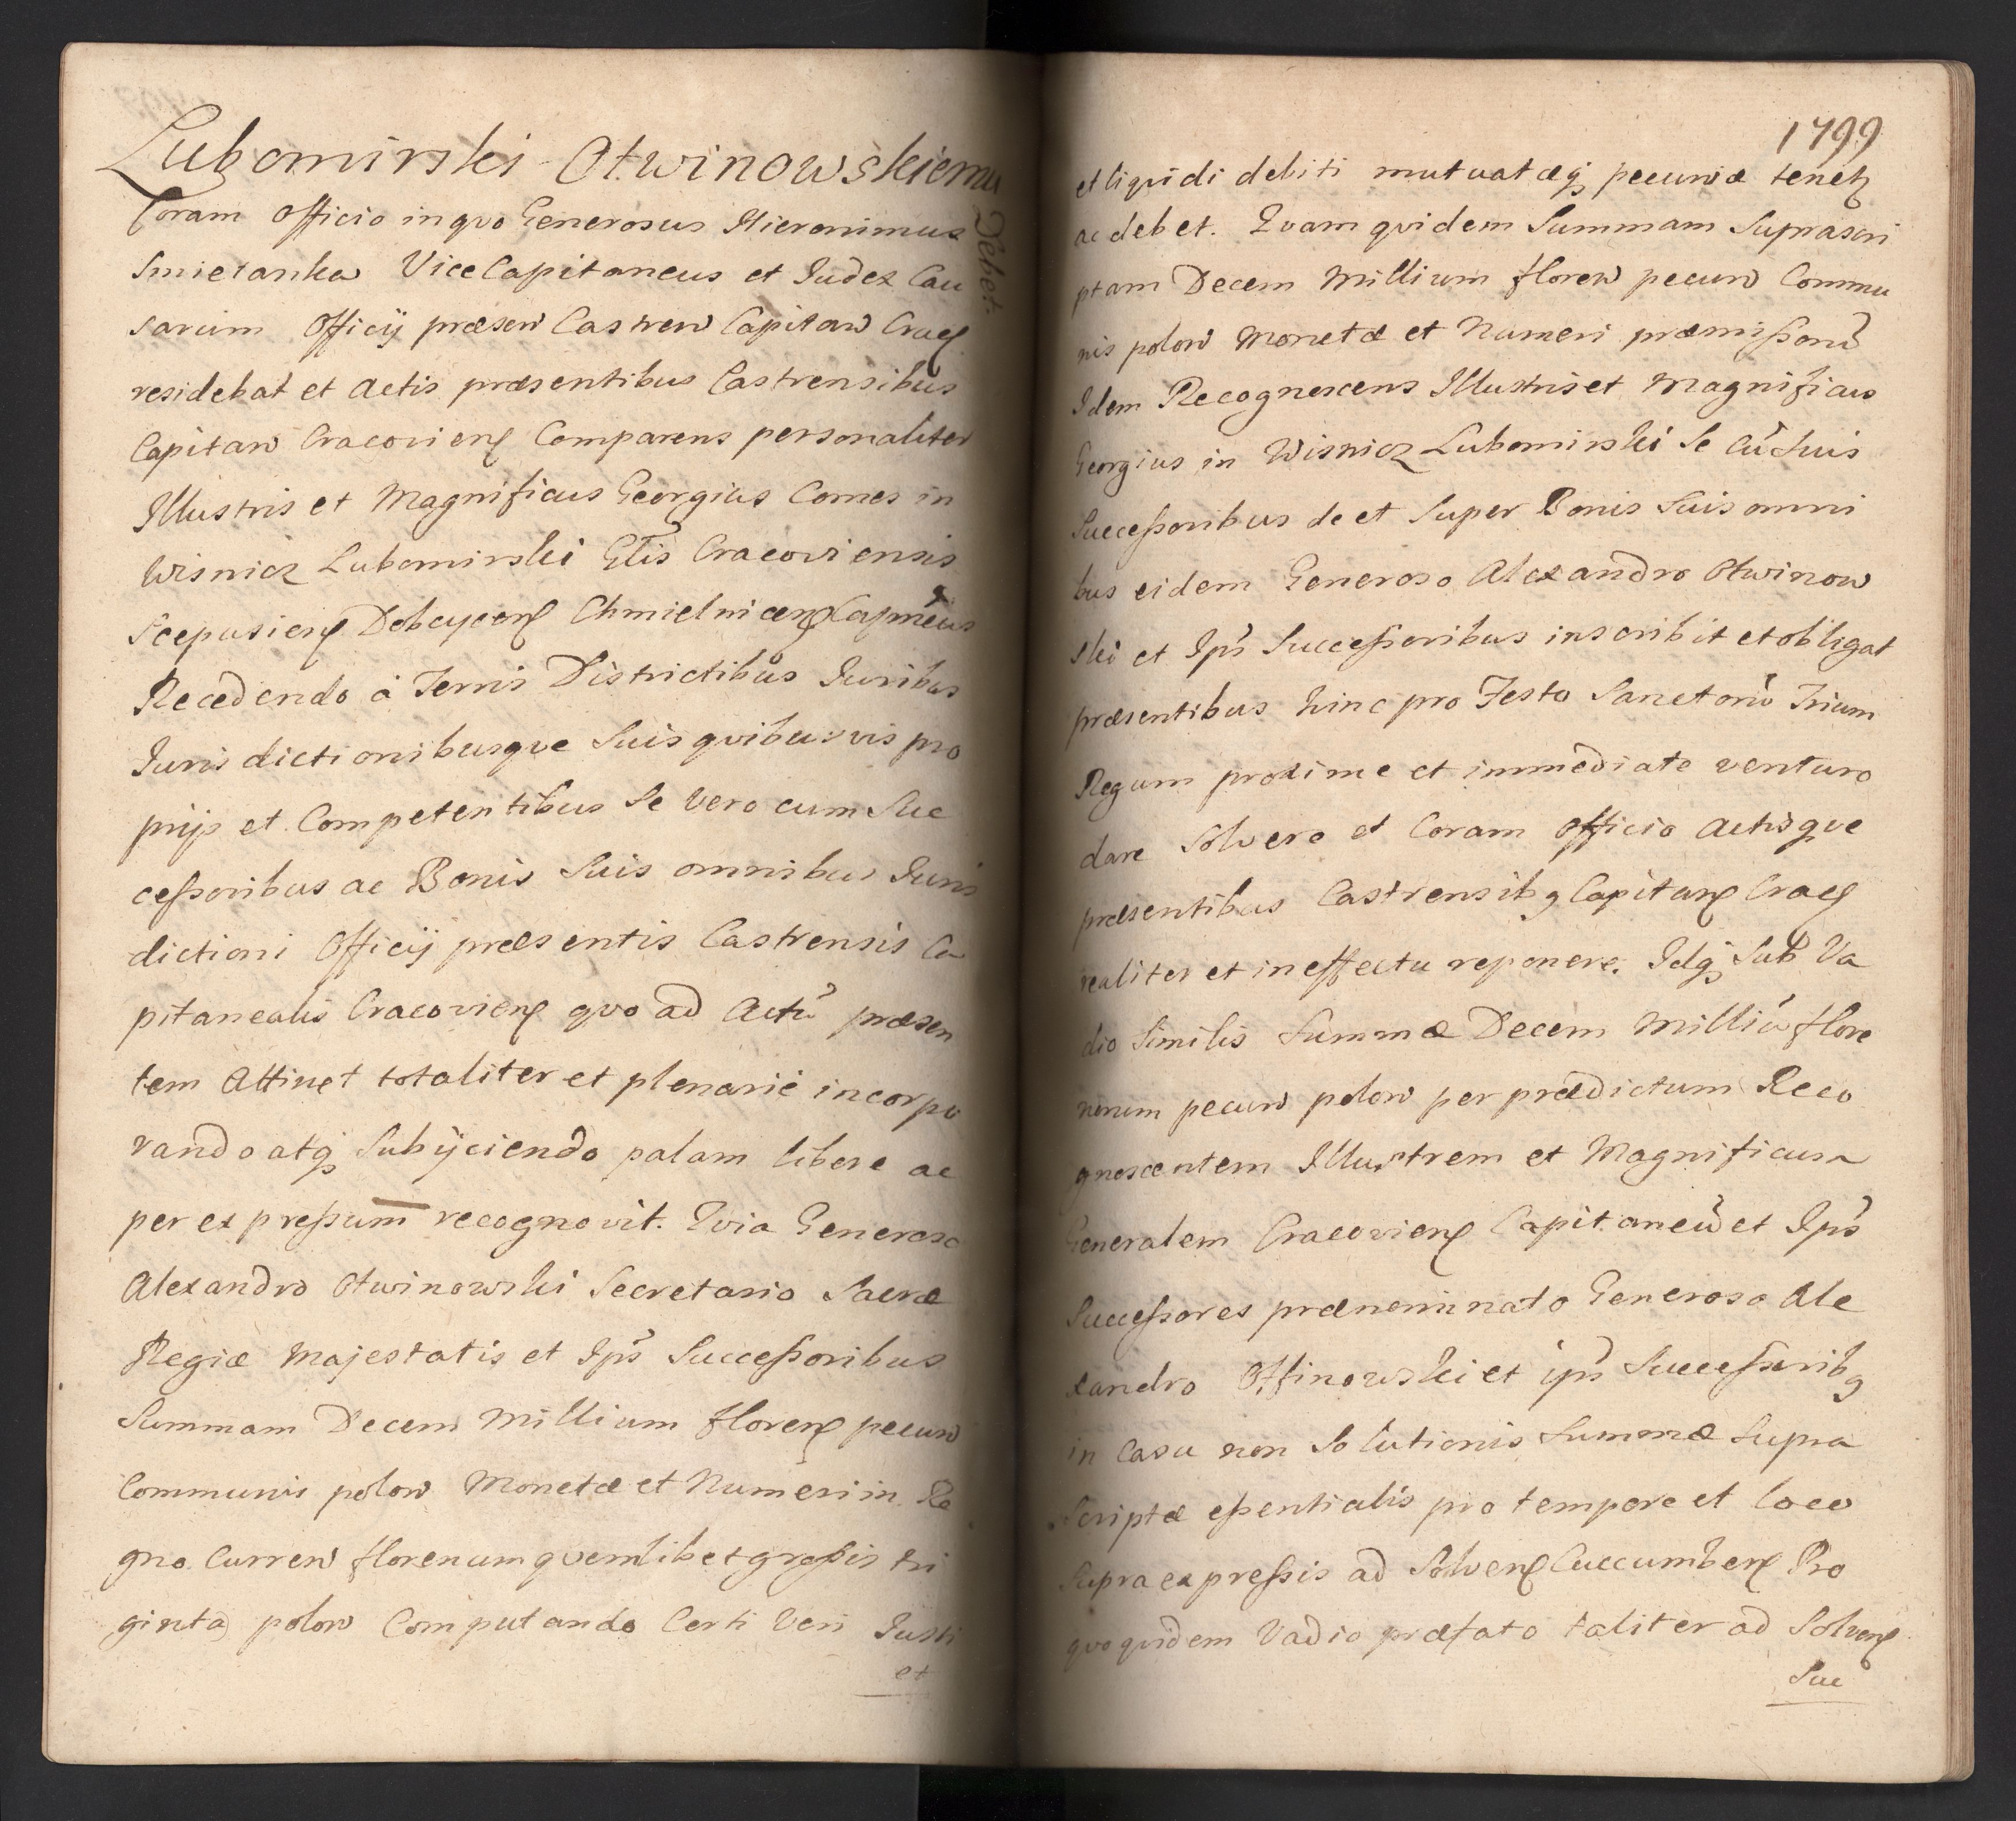 Lubomirski Otwinowskiemu
Debet.
Coram Officio in quo Generosus Hieronimus
Smietanka Vice Capitaneus et Judex Cau
sarum Officij præsen Castren Capitan Crac
residebat et Actis præsentibus Castrensibus
Capitan Cracovien Comparens personaliter
Illustris et Magnificus Georgius Comes in
Wisnicz Lubomirski Glis Cracoviensis
Scepusien Dobcycen Chmielnicen Capneus
Recedendo à Terris Districtibus Juribus
Jurisdictionibusque Suis quibusvis pro
prijs et Competentibus Se vero cum Suc
cessoribus ac Bonis Suis omnibus Juris
dictioni Officij præsentis Castrensis Ca
pitanealis Cracovien quo ad Actū præsen
tem Attinet totaliter et plenarie incorpo
rando atq Subijciendo palam libere ac
per expressum recognovit. Quia Generoso
Alexandro Otwinowski Secretario Sacræ
Regiæ Majestatis et Ips Successoribus
Summam Decem Millium floren pecun
Communis polon Monetæ et Numeri in Re
gno Curren florenum quemlibet grossis tri
ginta polon Computando Certi Veri Justi
et
1799
et liquidi debiti mutuatæq pecuniæ tenet
ac debet. Quam quidem Summam Suprascri
ptam Decem Millium floren pecun Commu
nis polon Monetæ et Numeri præmissorū
Idem Recognoscens Illustris et Magnificus
Georgius in Wisnicz Lubomirski Se cū Suis
Successoribus de et Super Bonis Suis omni
bus eidem Generoso Alexandro Otwinow
ski et Ips Successoribus inscribit et obligat
præsentibus hinc pro Festo Sanctorū Trium
Regum proxime et immediate venturo
dare Solvere et Coram Officio Actisque
præsentibus Castrensibq Capitan Crac
realiter et in effectu reponere. Idq Sub Va
dio Similis Summæ Decem Milliū flore
norum pecun polon per prædictum Reco
gnoscentem Illustrem et Magnificum
Generalem Cracovien Capitaneū et Ips
Successores prænominato Generoso Ale
xandro Otfinowski et ips Successoribq
in Casu non Solutionis Summæ Supra
Scriptæ essentialis pro tempore et loco
Supra expressis ad Solven Succumben Pro
quo quidem Vadio præfato taliter ad Solven
Suc